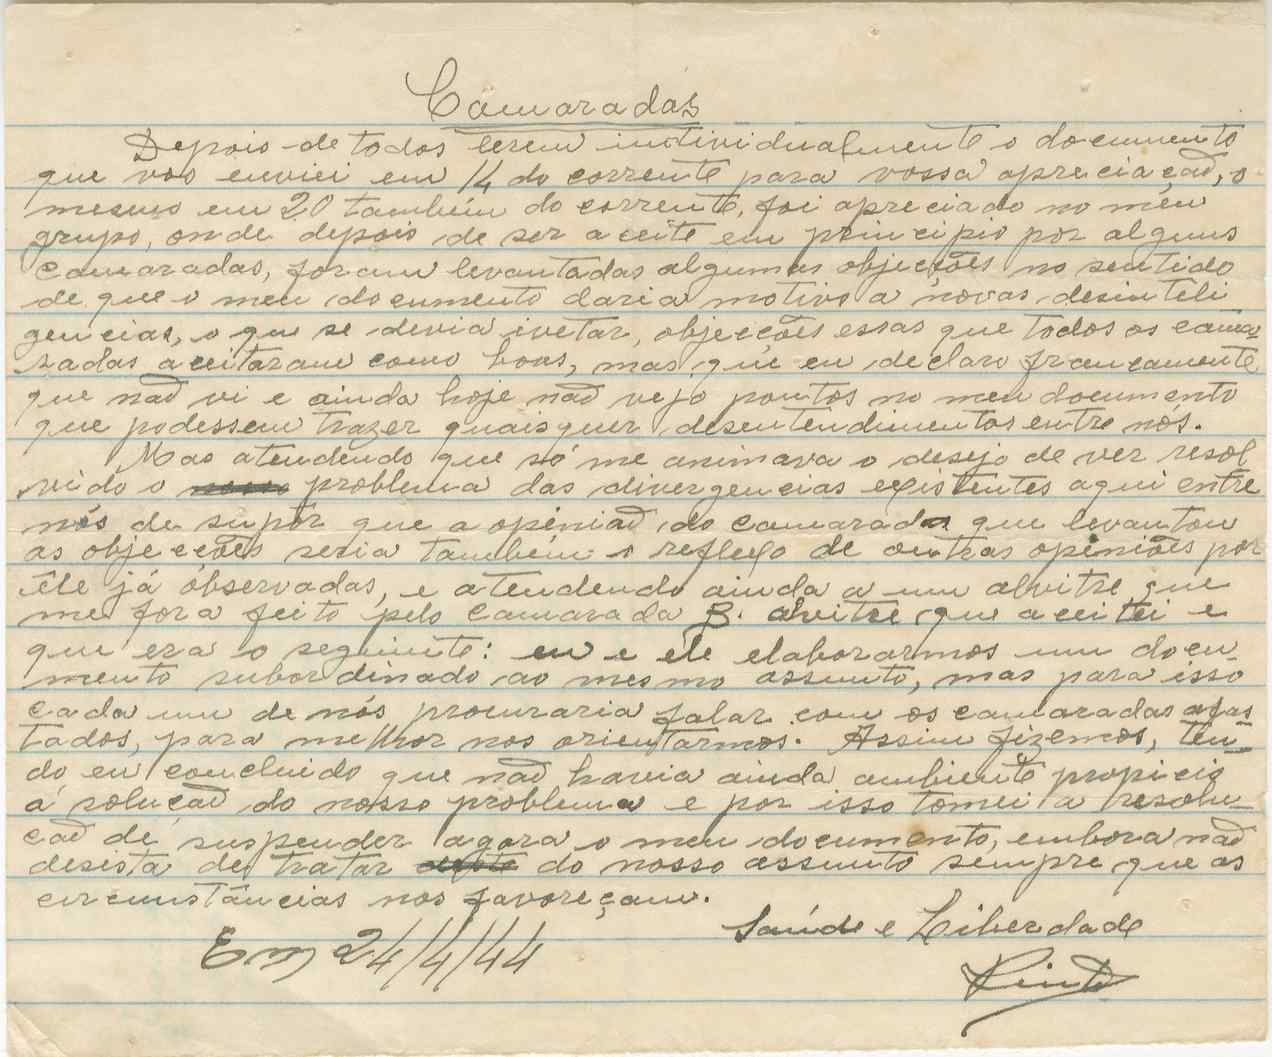 Camaradas
Depois de todos lerem individualmente o documento
que vos enviei em 14 do corrente para vossa apreciaçaõ, o
mesmo em 20 também do corrente, foi apreciado no meu
grupo, onde depois de ser aceite em principio por alguns
camaradas, foram levantadas algumas objecções no sentido
de que o meu documento daria motivo a novas desinteli
gencias, o que se devia ivetar, objecções essas que todos os cama-
radas aceitaram como boas, mas que eu declaro francamente
que naõ vi e ainda hoje naõ vejo pontos no meu documento
que podessem trazer quaisquer desentendimentos entre nós.
Mas atendendo que só me animava o desejo de ver resol
vido o problema das divergencias existentes aqui entre
nós de supôr que a opiniaõ do camarada que levantou
as objecções seria também o reflexo de outras opiniões por
êle já óbservadas, e atendendo ainda a um alvitre que
me fora feito pelo camarada B. alvitre que aceitei e
que era o seguinte: eu e ele elaborarmos um docu-
mento subordinado ao mesmo assunto, mas para isso
cada um de nós procuraria falar com os camaradas afas
tados, para melhor nos orientarmos. Assim fizemos, ten-
do eu concluido que naõ havia ainda ambiente propicio
á soluçaõ do nosso problema e por isso tomei a resolu-
çaõ de suspender agora o meu documento, embora naõ
desista de tratar do nosso assunto sempre que as
circunstâncias nos favoreçam.
Saúde e Liberdade
Em 24/4/44
Pinto